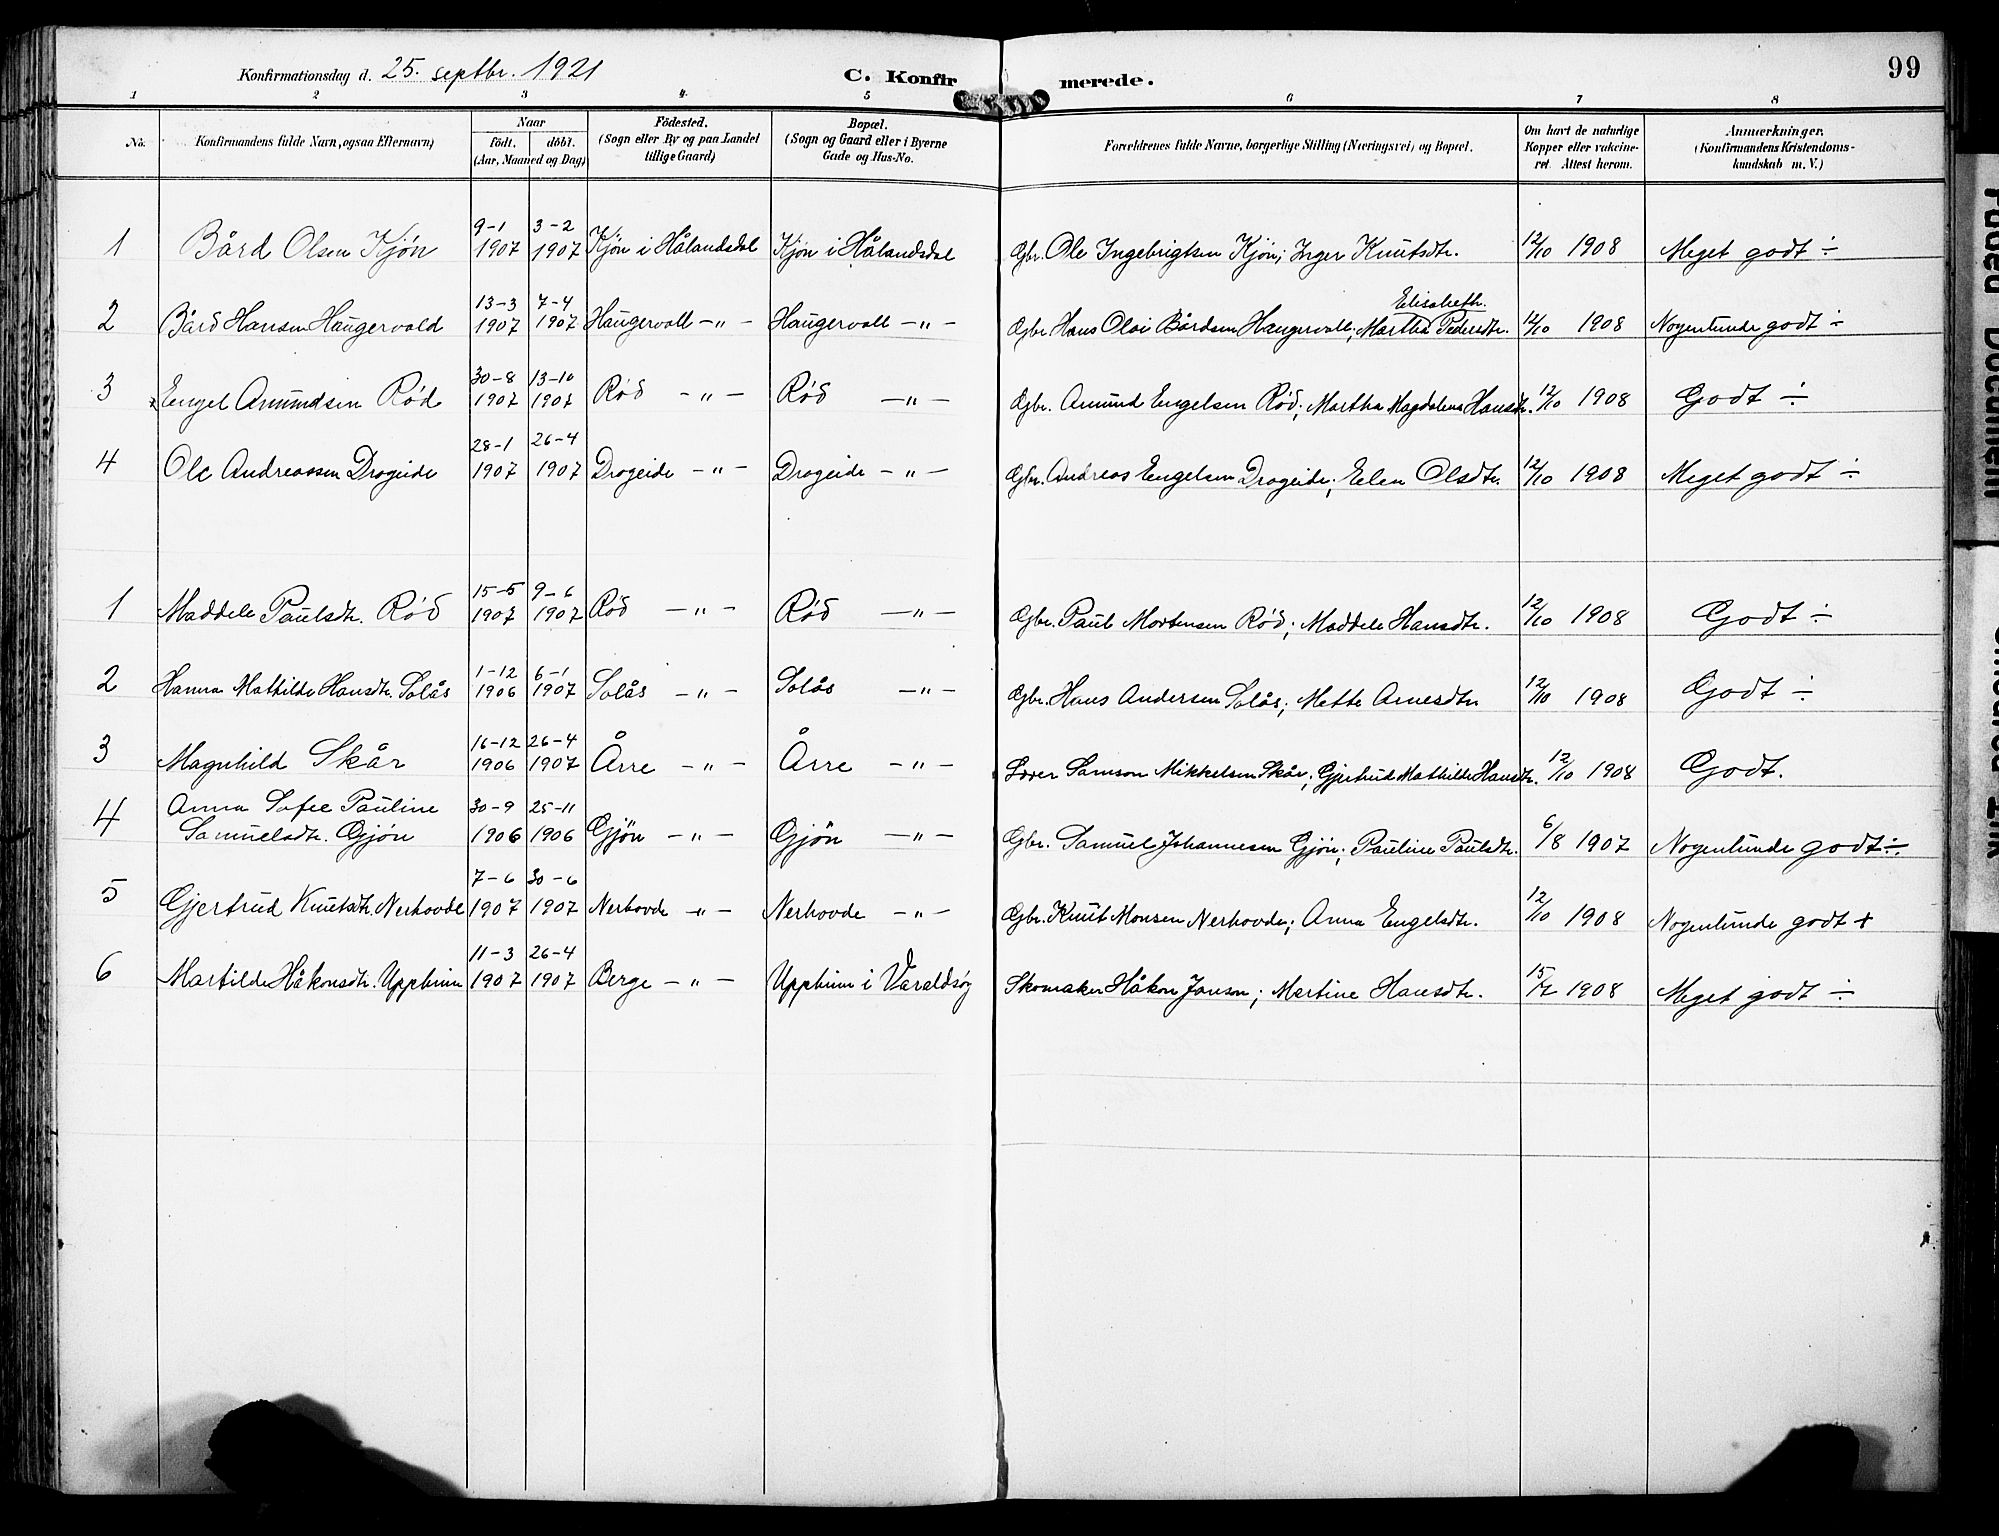 Konfirmationsdag d. 25. septbr. 1921 C. Konfirmerede. 99
1 2 3 4 5 6 7 8
No. Konfirmandens fulde Navn, ogsaa Efternavn) Naar födt. döbt. (Aar, Maaned og Dag) Födested. (Sogn eller By og paa Landet tillige Gaard) Bopæl. (Sogn og Gaard eller i Byerne Gade og Hus-No. Forældrenes fulde Navne, borgerlige Stilling (Næringsvei) og Bopæl. Om havt de naturlige Kopper eller vakcineret. Attest herom. Anmærkninger. (Konfirmandens Kristendomskundskab m. V.)
1 Bård Olsen Kjøn 9-1 1907 3-2 1907 Kjøn i Hålandsdal Kjøn i Hålandsdal Gbr. Ole Ingebrigtsen Kjøn; Inger Knutsdtr. 12/10 1908 Meget godt ÷
2 Bård Hansen Haugervold 13-3 1907 7-4 1907 Haugervoll -"- Haugervoll -"- Gbr. Hans Olai Bårdsen Haugervoll; Martha Elisabeth. Pedersdtr. 12/10 1908 Nogenlunde godt ÷
3 Engel Amundsen Rød 30-8 1907 13-10 1907 Rød -"- Rød -"- Gbr. Amund Engelsen Rød; Martha Magdalena Hansdtr. 12/10 1908 Godt ÷
4 Ole Andreassen Drageide 28-1 1907 26-4 1907 Drageide -"- Drageide -"- Gbr. Andreas Engelsen Drageide; Elen Olsdtr. 12/10 1908 Meget godt ÷
1 Maddele Paulsdtr. Rød 15-5 1907 9-6 1907 Rød -"- Rød -"- Gbr. Paul Mortensen Rød; Maddele Hansdtr. 12/10 1908 Godt ÷
2 Hanna Mathilde Hansdtr. Solås 1-12 1906 6-1 1907 Solås -"- Solås -"- Gbr. Hans Andersen Solås; Mette Arnesdtr 12/10 1908 Godt ÷
3 Magnhild Skår 16-12 1906 26-4 1907 Årre -"- Årre -"- Lærer Samson Mikkelsen Skår; Gjertrud Mathilde Hansdtr. 12/10 1908 Godt.
4 Anna Sofie Pauline Samuelsdtr. Gjøn 30-9 1906 25-11 1906 Gjön -"- Gjön -"- Gbr. Samuel Johannesen Gjön; Pauline Paulsdtr. 6/8 1907 Nogenlunde godt ÷
5 Gjertrud Knutsdtr. Nerhovde 7-6 1907 30-6 1907 Nerhovde -"- Nerhovde -"- Gbr. Knut Monsen Nerhovde; Anna Engelsdtr. 12/10 1908 Nogenlunde godt +
6 Martilde Håkonsdtr. Uppheim 11-3 1907 26-4 1907 Berge -"- Uppheim i Varaldsøy Skomaker Håkon Janson; Martine Hansdtr. 15/7 1908 Meget godt ÷
Faded Document